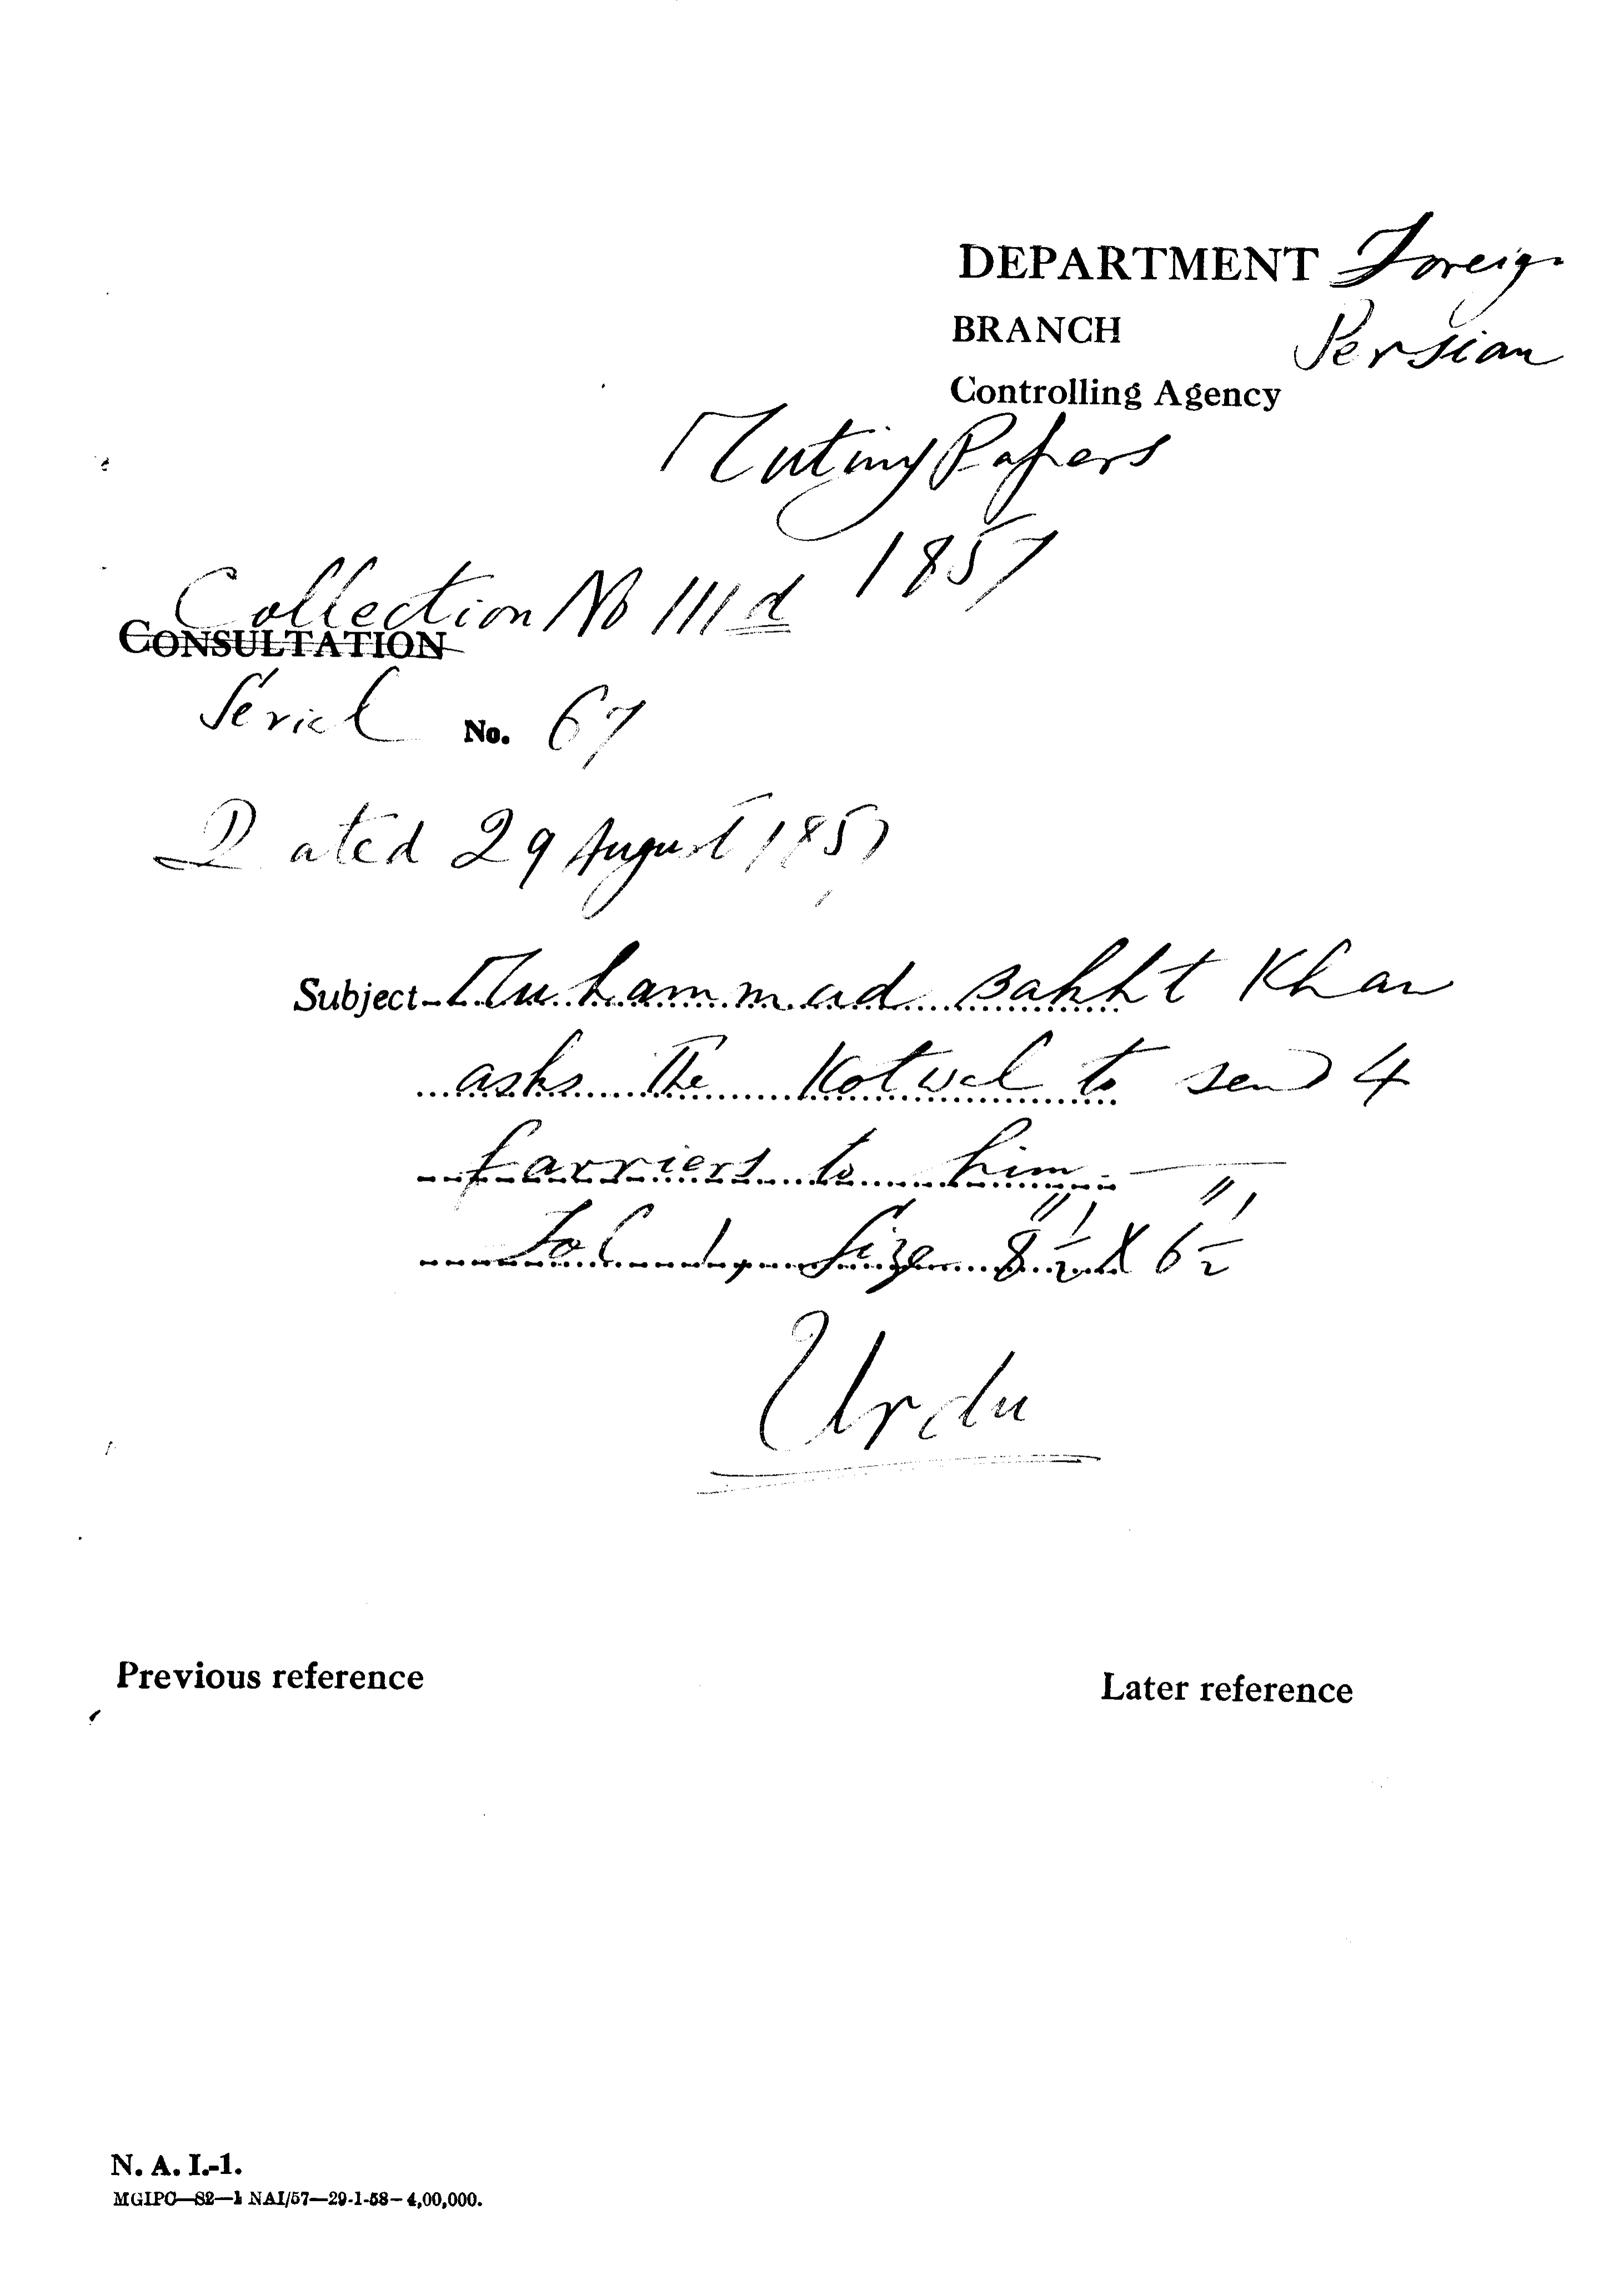 DEPARTMENT Foreign
BRANCH Persian
Controlling Agency
Mutiny Papers
1857
Collection No III d
CONSULTATION
Serial No. 67
Dated 29 August 1857
Subject- Muhammad Bakht Khan
asks the Kotwal to send 4
farriers to him.—
Fol 1, Size 8½" X 6½"
Urdu
Previous reference
Later reference
N. A. I.-1.
MGIPC—S2—1 NAI/57—29-1-58—4,00,000.